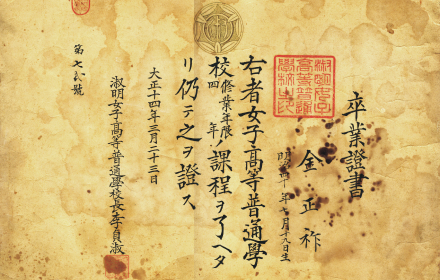 卒業證書
金正祚
淑明女子
高等普通
學校之印
右者女子高等普通學
校修業年限四年ノ課程ヲ了ヘタ
リ仍テ之ヲ證ス
大正十四年三月二十三日
淑明女子高等普通學校長李貞淑